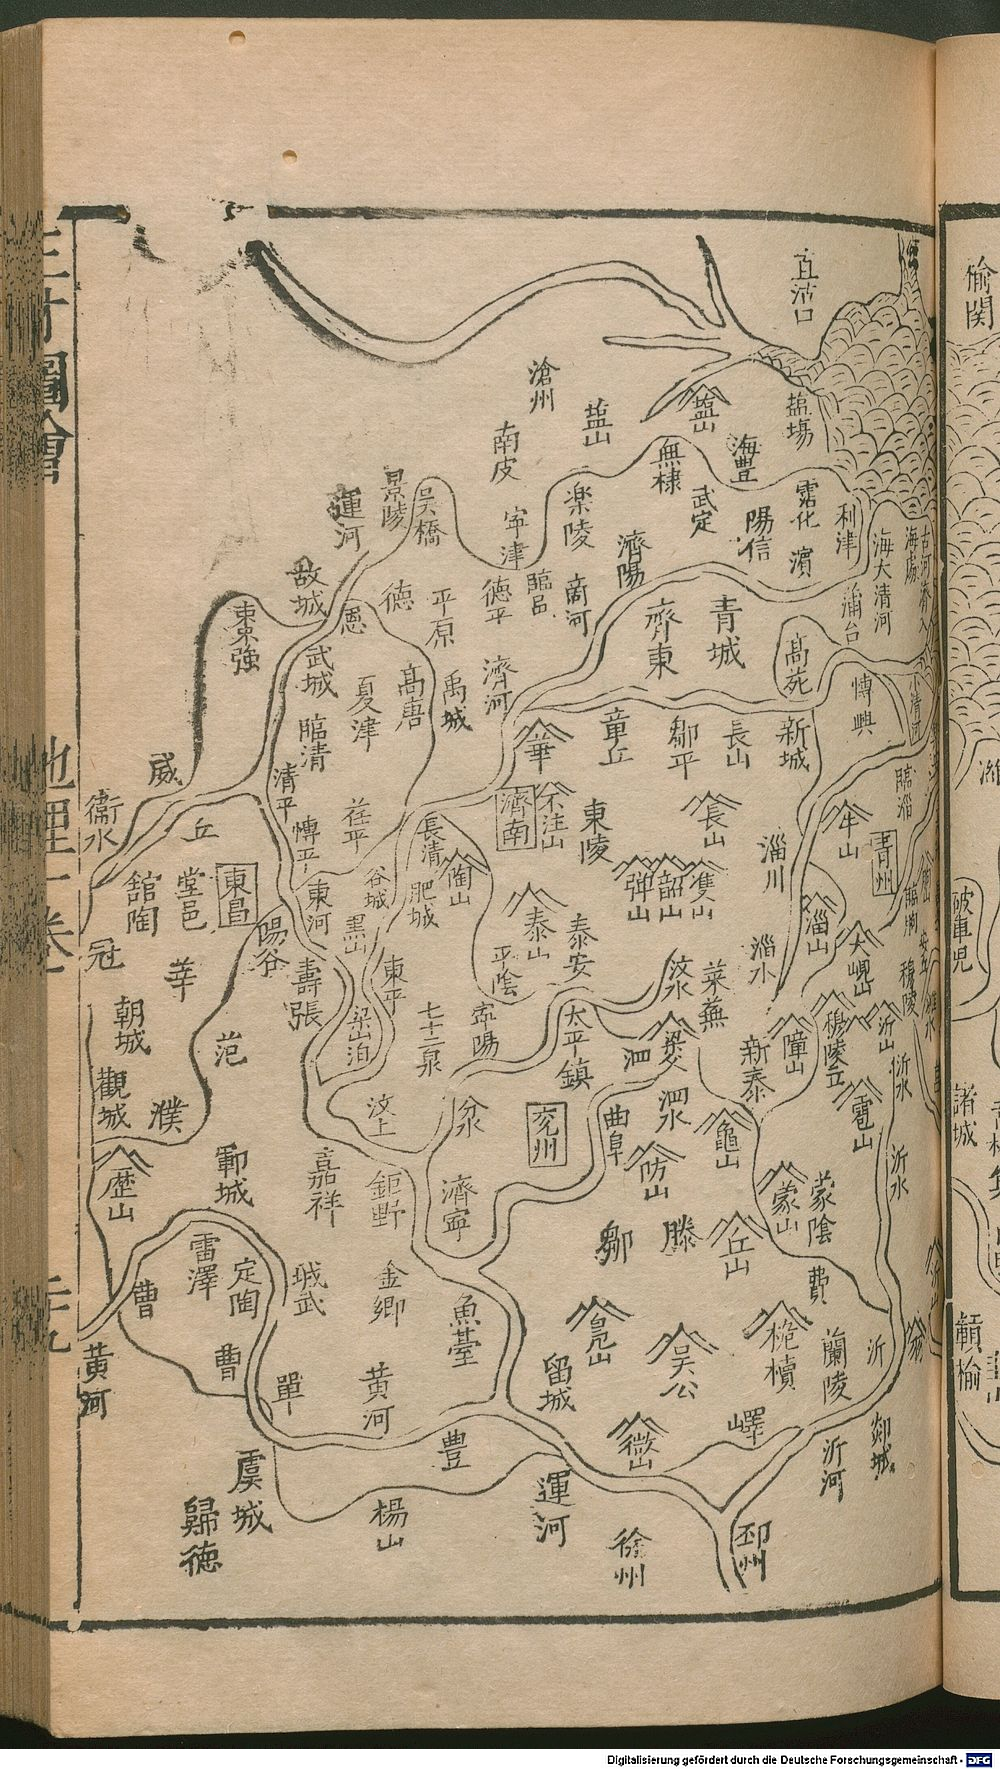 三才圖會
地理一卷
直沽口
滄州
塩山
塩山
塩場
南皮
無棣
海豊
武定
霑化
陽信
濱
利津
海大清河
蒲台
景陵
吳橋
運河
寧津
楽陵
濟陽
故城
恩
德
平原
德平
臨邑
商河
齊東
青城
高苑
博興
小清河
棗強
武城
夏津
高唐
禹城
濟河
章丘
鄒平
長山
新城
臨清
清平
博平
茌平
華
不注山
濟南
東陵
長山
淄川
牛山
臨淄
青州
臨朐
威
衛水
丘
舘陶
堂邑
東昌
冠
莘
陽谷
東河
谷城
黒山
長清
肥城
陶山
泰山
泰安
平陰
弹山
韶山
淄山
淄水
大峴山
穆陵
壽張
東平
梁山泊
七十二泉
寧陽
太平鎮
汶水
萊蕪
新泰
障山
穆陵立
沂山
沂水
雹山
朝城
觀城
范
濮
歴山
鄆城
汶上
嘉祥
鉅野
濟寧
兖州
曲阜
泗
泗水
防山
龜山
蒙山
蒙陰
沂水
雷澤
定陶
曹
曹
城武
單
金郷
魚䑓
黄河
黄河
鄒
滕
丘山
費
留城
吳公
桅櫝
蘭陵
沂
嶧
徴山
沂河
郯城
豊
虞城
歸德
楊山
運河
徐州
邳州
榆関
諸城
Digitalisierung gefördert durch die Deutsche Forschungsgemeinschaft - DFG